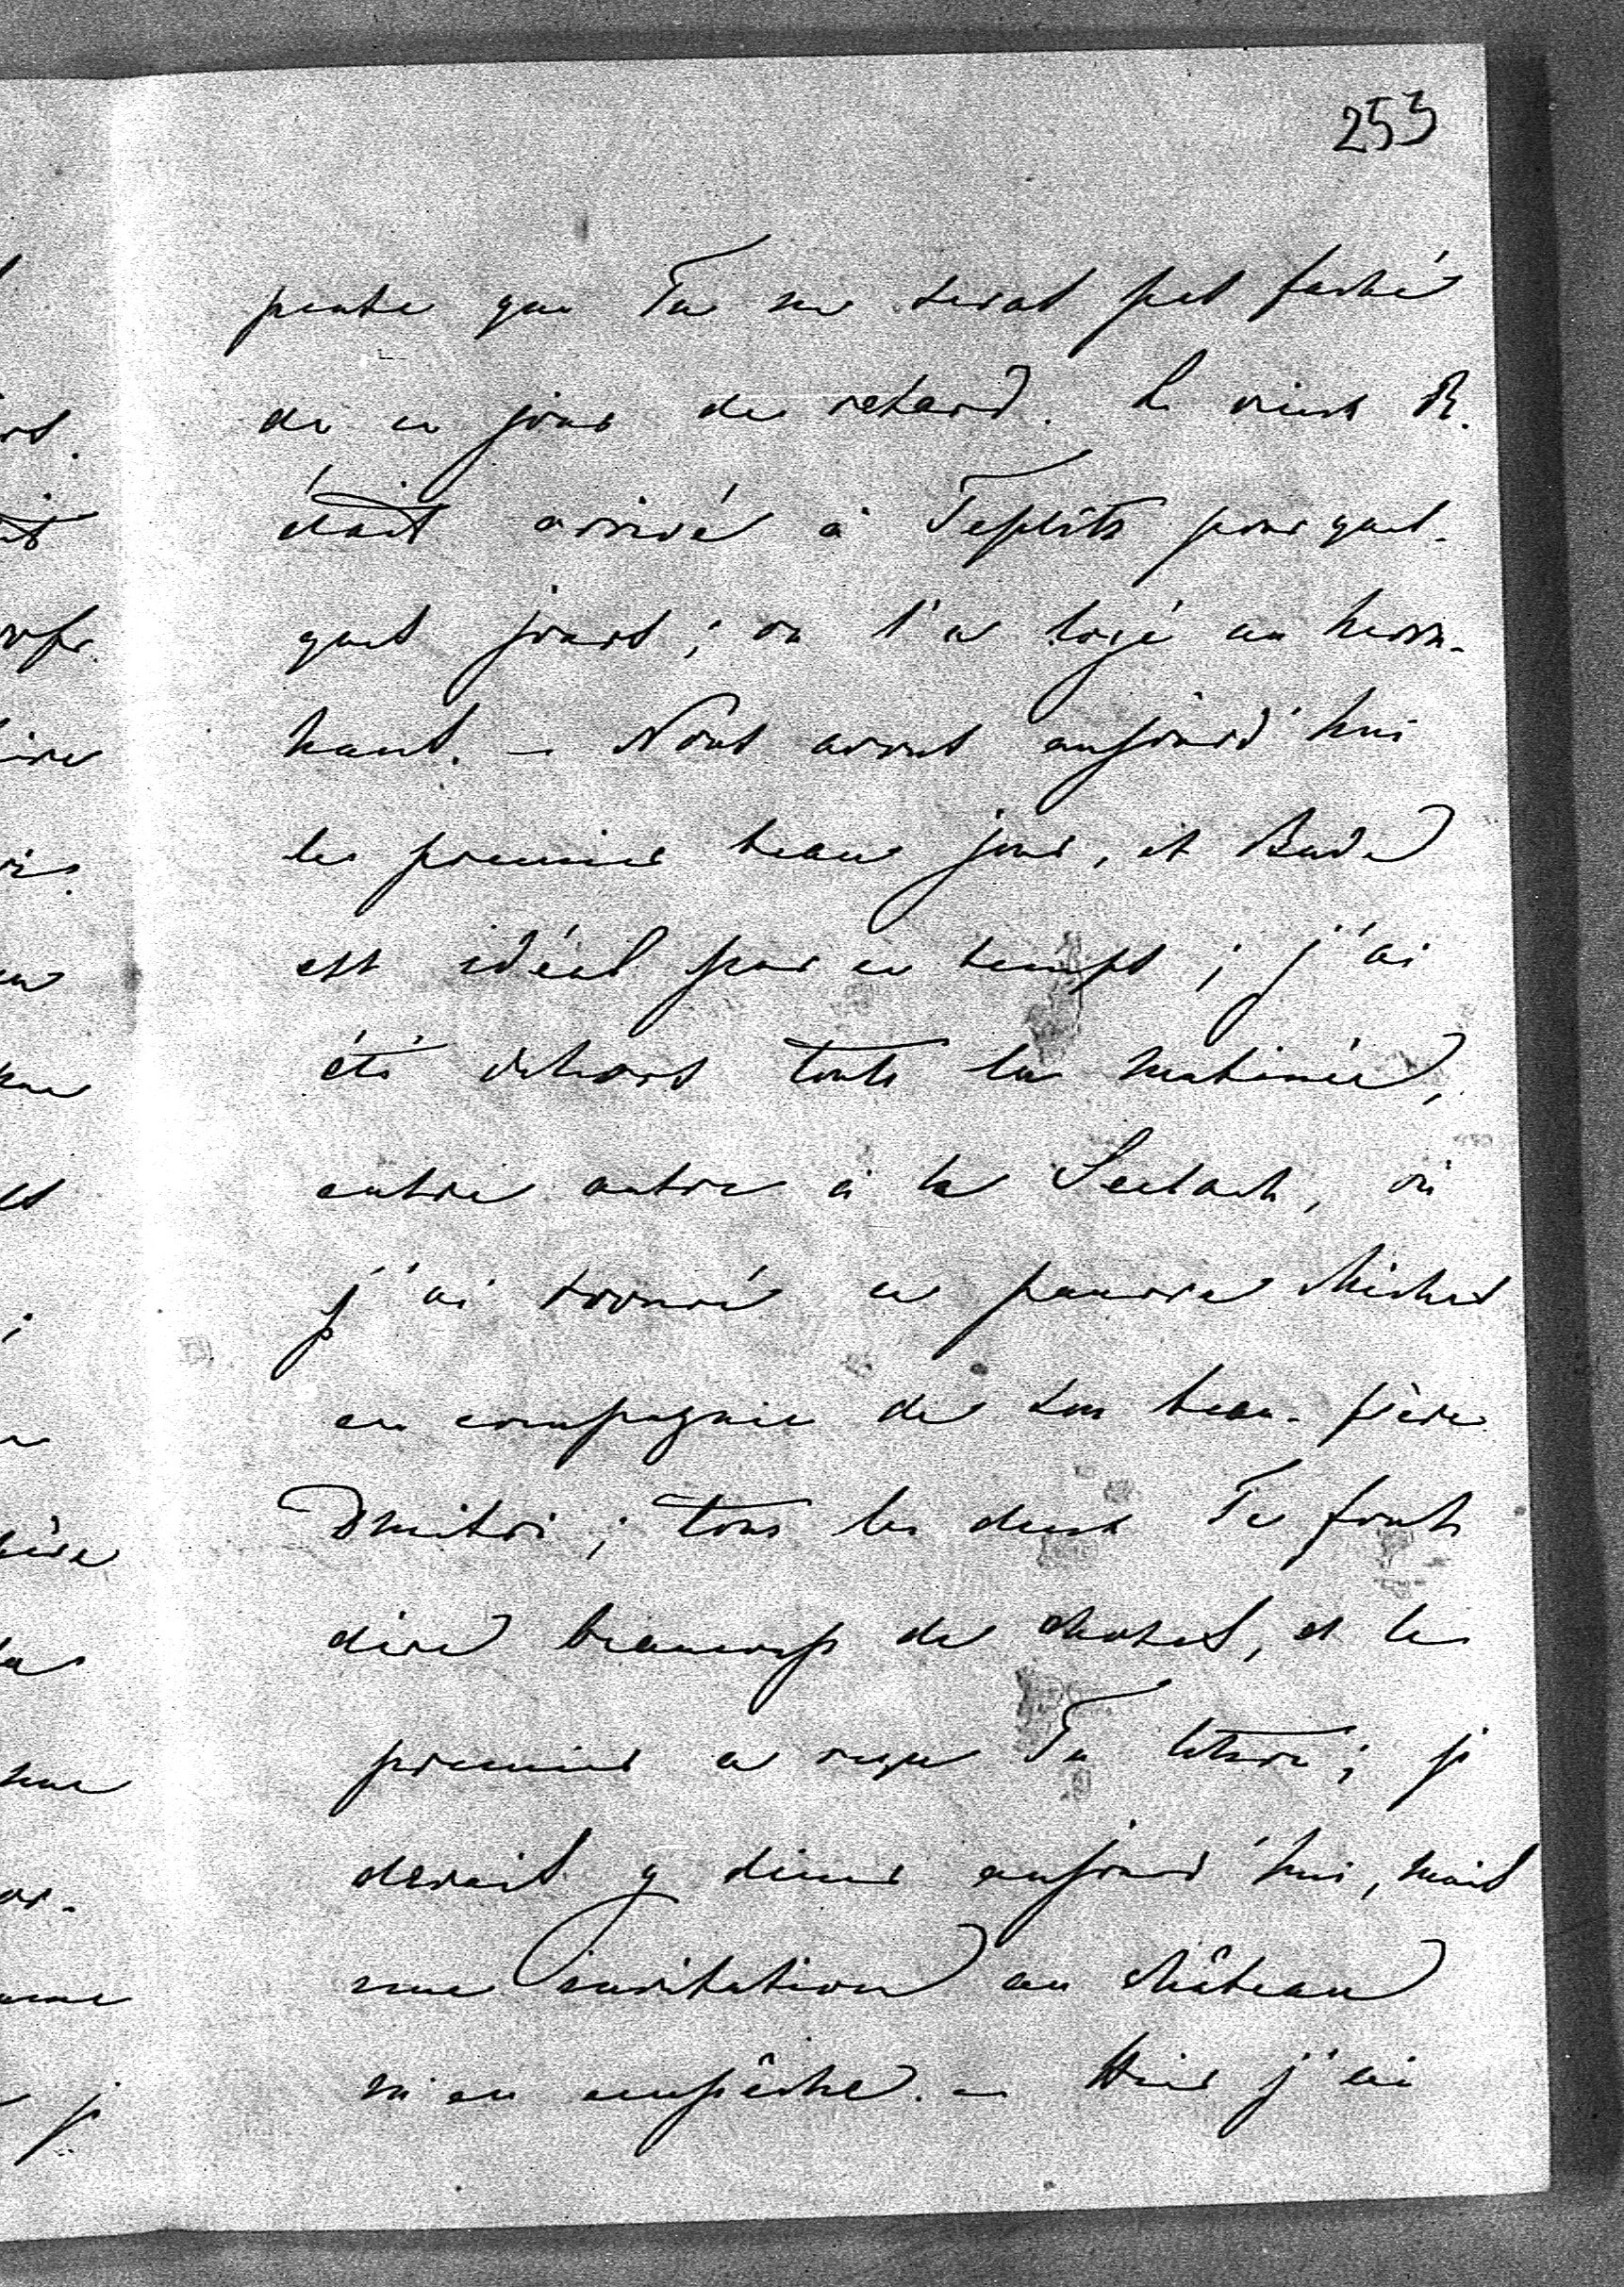 253
pense que Tu ne seras pas faché
de ce jour de retard. Le vieux R.
était arrivé à Teplitz pour quel-
ques jours; on l'a logé au herrn-
haus. – Nous avons aujourd'hui
le premier beau jour, et Bade
est idéal par ce temps; j'ai
été dehors toute la matinée,
entre autre à la Seelach, où
j'ai trouvé ce pauvre Michel
en compagnie de son beau-frère
Dmitri; tous les deux Te font
dire beaucoup de choses, et le
premier a reçu Ta lettre; je
devais y diner aujourd'hui, mais
une invitation au château
m'en empêche. – Hier j'ai